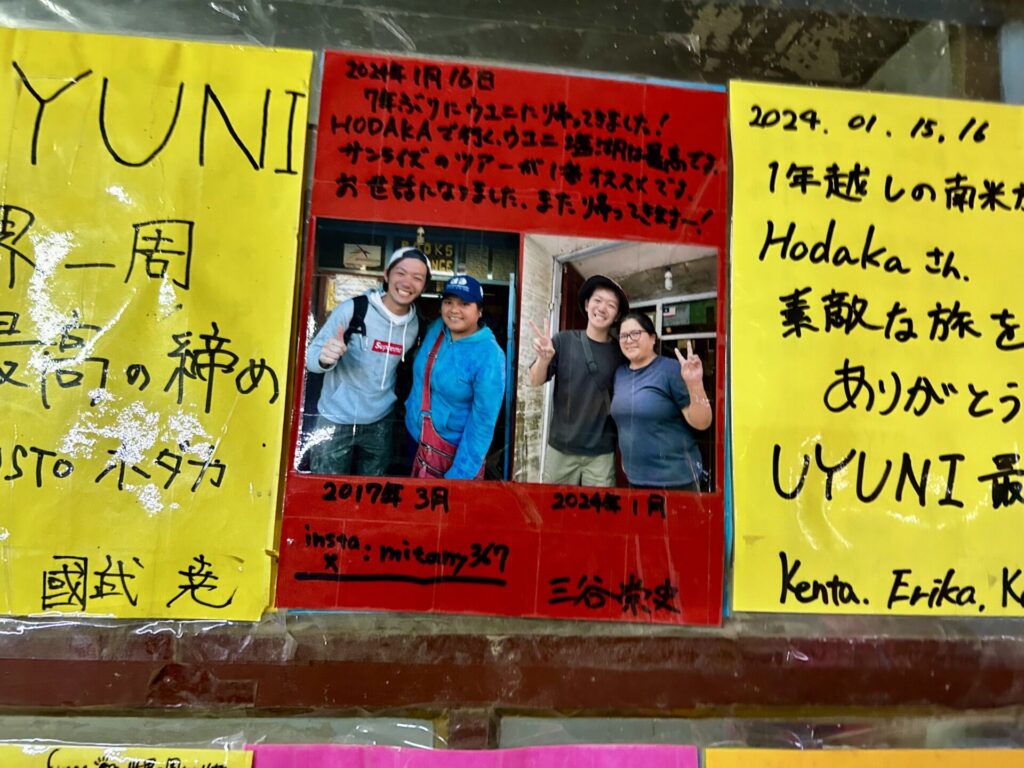 UYUNI
界一周
最高の締め
木ダカ
國武 尭
2024年1月16日
7年ぶりにウユニに帰ってきました!
HODAKAで行く、ウユニ塩湖は最高です
サンライズのツアーが1番オススメです。
お世話になりました、また帰ってきますー!
BOOKS
Supreme
2017年3月
2024年1月
insta
: mitany367
三谷崇史
2024. 01. 15, 16
1年越しの南米
Hodakaさん、
素敵な旅を
ありがとう
UYUNI 最
Kenta. Erika.